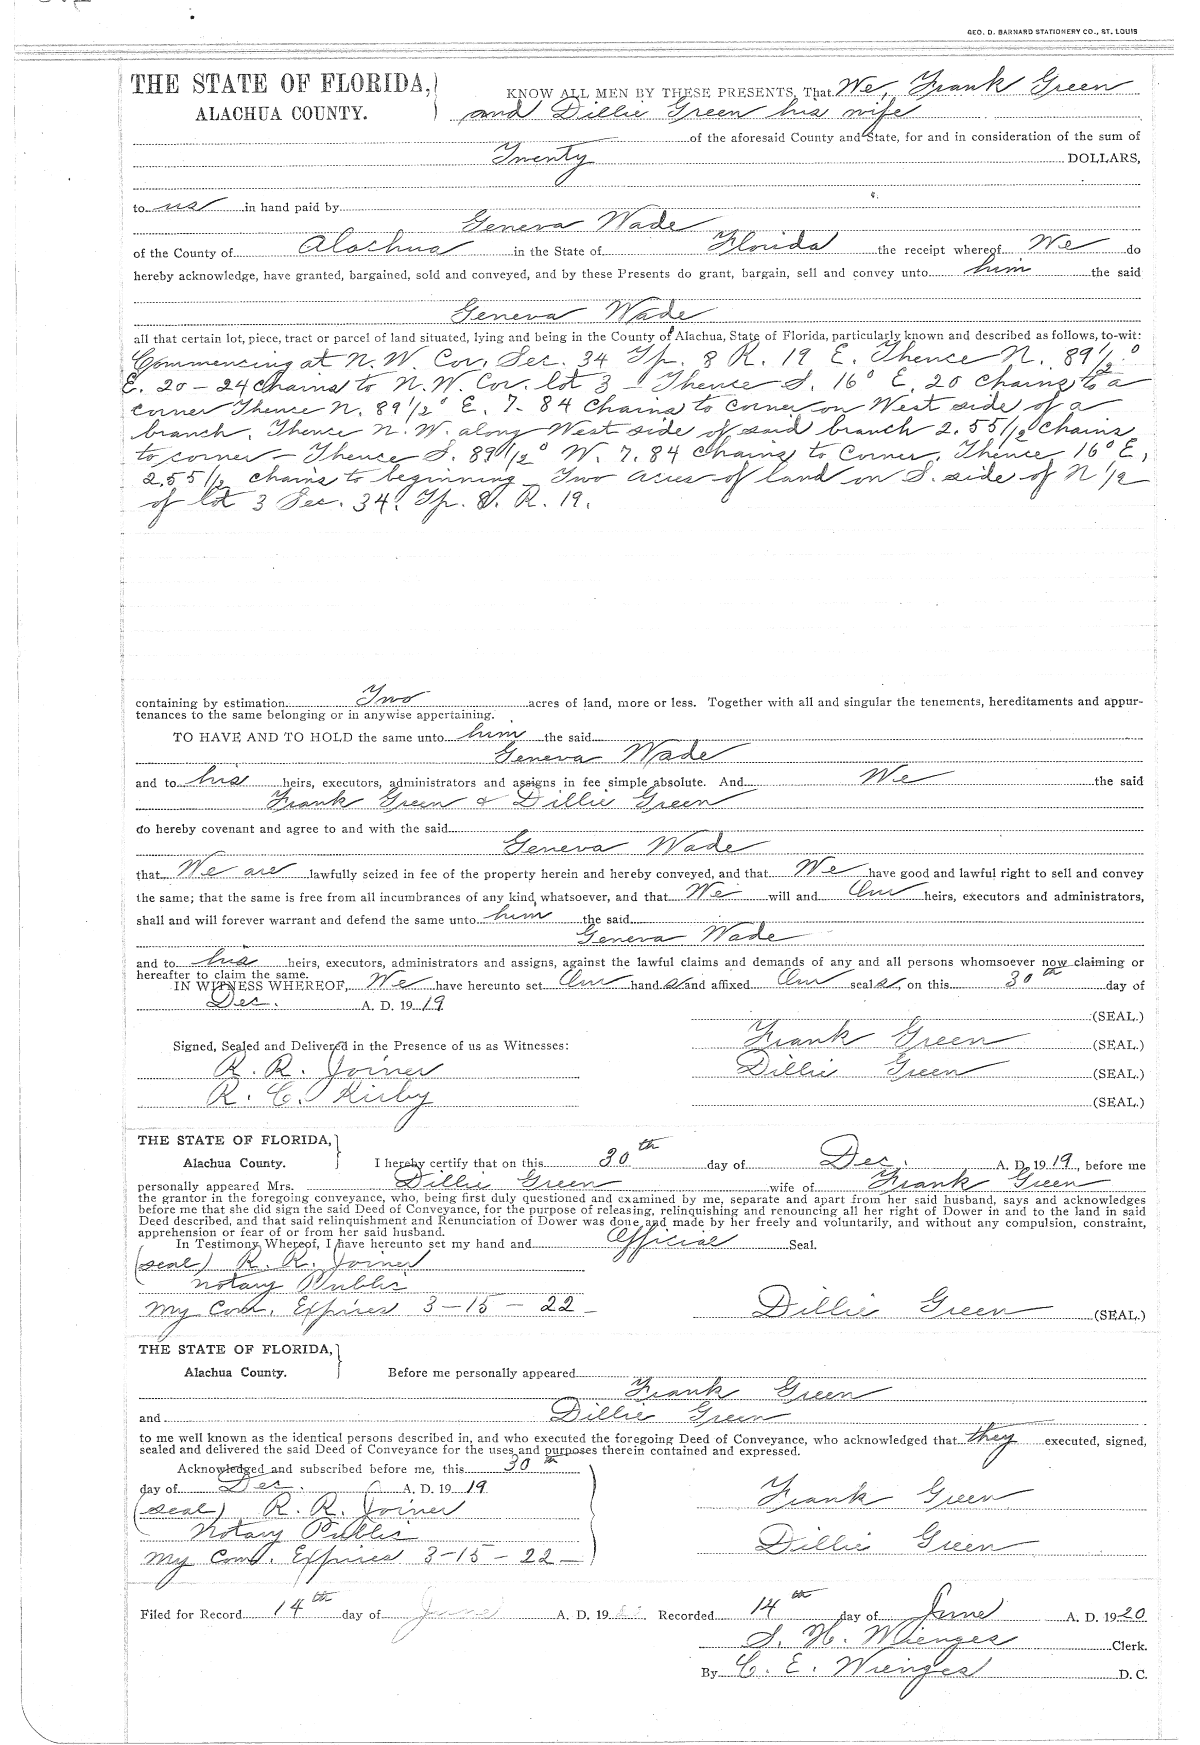 GEO. D. BARNARD STATIONERY CO., ST. LOUIS
THE STATE OF FLORIDA,
ALACHUA COUNTY.
KNOW ALL MEN BY THESE PRESENTS, That We, Frank Green
and Dillie Green his wife
of the aforesaid County and State, for and in consideration of the sum of
Twenty DOLLARS,
to us in hand paid by
Geneva Wade
of the County of Alachua in the State of Florida the receipt whereof We do
hereby acknowledge, have granted, bargained, sold and conveyed, and by these Presents do grant, bargain, sell and convey unto him the said
Geneva Wade
all that certain lot, piece, tract or parcel of land situated, lying and being in the County of Alachua, State of Florida, particularly known and described as follows, to-wit:
Commencing at N. W. Cor. Sec. 34 Tp. 8 R. 19 E. Thence N. 89 1/2°
E. 20-24 chains to N. W. Cor. lot 3 - Thence S. 16° E. 20 chains to a
corner Thence N. 89 1/2° E. 7-84 chains to corner on West side of a
branch. Thence N. W. along West side of said branch 2.55 1/2 chains
to corner - Thence S. 89 1/2° W. 7.84 chains to Corner. Thence 16° E,
2.55 1/2 chains to beginning Two acres of land on S. side of N 1/2
of lot 3 Sec. 34. Tp. 8. R. 19.
containing by estimation Two acres of land, more or less. Together with all and singular the tenements, hereditaments and appur-
tenances to the same belonging or in anywise appertaining.
TO HAVE AND TO HOLD the same unto him the said
Geneva Wade
and to his heirs, executors, administrators and assigns in fee simple absolute. And We the said
Frank Green & Dillie Green
do hereby covenant and agree to and with the said
Geneva Wade
that We are lawfully seized in fee of the property herein and hereby conveyed, and that We have good and lawful right to sell and convey
the same; that the same is free from all incumbrances of any kind whatsoever, and that We will and Our heirs, executors and administrators,
shall and will forever warrant and defend the same unto him the said
Geneva Wade
and to his heirs, executors, administrators and assigns, against the lawful claims and demands of any and all persons whomsoever now claiming or
hereafter to claim the same.
IN WITNESS WHEREOF, We have hereunto set Our hand s and affixed Our seal s, on this 30th day of
Dec. A. D. 1919
(SEAL.)
Frank Green (SEAL.)
Signed, Sealed and Delivered in the Presence of us as Witnesses:
R. R. Joiner Dillie Green (SEAL.)
R. C. Kirby (SEAL.)
THE STATE OF FLORIDA,
Alachua County. I hereby certify that on this 30th day of Dec. A. D. 1919, before me
personally appeared Mrs. Dillie Green wife of Frank Green
the grantor in the foregoing conveyance, who, being first duly questioned and examined by me, separate and apart from her said husband, says and acknowledges
before me that she did sign the said Deed of Conveyance, for the purpose of releasing, relinquishing and renouncing all her right of Dower in and to the land in said
Deed described, and that said relinquishment and Renunciation of Dower was done and made by her freely and voluntarily, and without any compulsion, constraint,
apprehension or fear of or from her said husband.
In Testimony Whereof, I have hereunto set my hand and Official Seal.
(seal) R. R. Joiner
Notary Public
My Com. Expires 3-15-22- Dillie Green (SEAL.)
THE STATE OF FLORIDA,
Alachua County. Before me personally appeared
Frank Green
and Dillie Green
to me well known as the identical persons described in, and who executed the foregoing Deed of Conveyance, who acknowledged that they executed, signed,
sealed and delivered the said Deed of Conveyance for the uses and purposes therein contained and expressed.
Acknowledged and subscribed before me, this 30th
day of Dec. A. D. 1919 Frank Green
(seal) R. R. Joiner
Notary Public Dillie Green
My Com. Expires 3-15-22-
Filed for Record 14th day of June A. D. 19 Recorded 14th day of June A. D. 1920
S. H. Wienges Clerk.
By C. E. Wienges D. C.